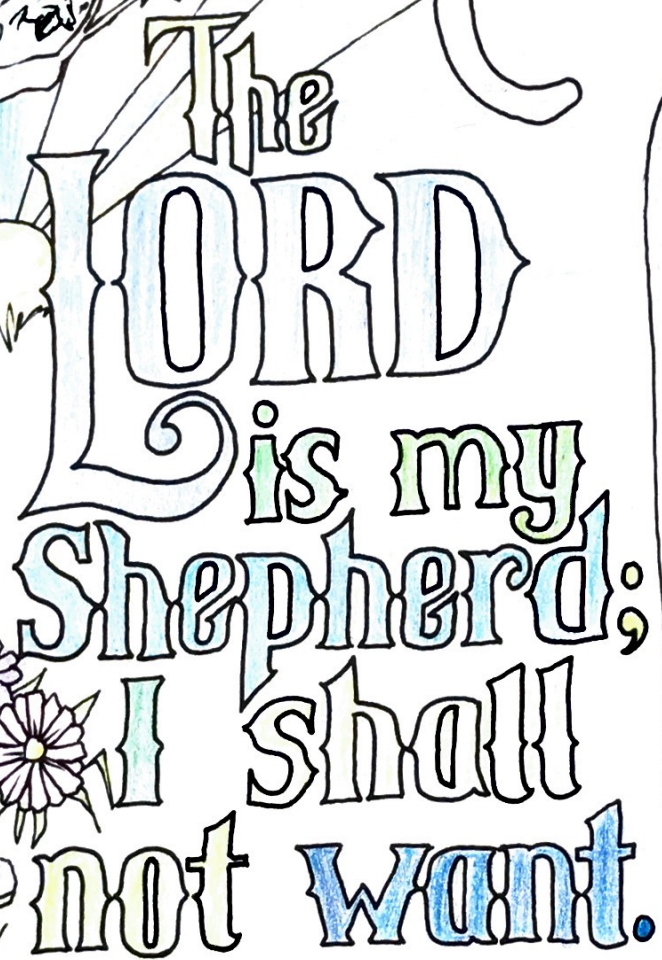 The
LORD
is my
Shepherd;
I shall
not want.